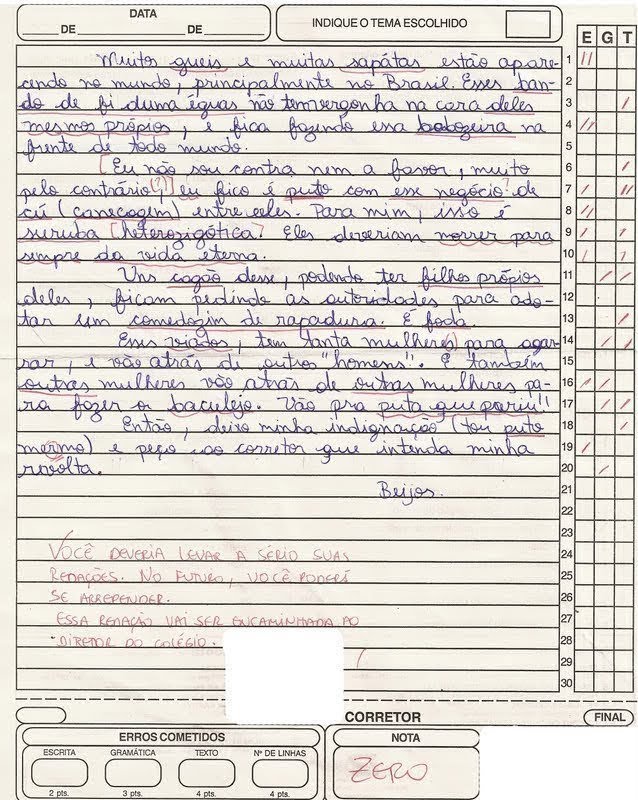 DATA
DE DE
INDIQUE O TEMA ESCOLHIDO
E G T
Muitos gueis e muitas sapátas estão apare- 1
cendo no mundo, principalmente no Brasil. Esses ban- 2
do de fi duma éguas não temvergonha na cara deles 3
mesmos própios, e fica fazendo essa babozeira na 4
frente de todo mundo. 5
[Eu não sou contra nem a favor, muito 6
pelo contrário,(?)] eu fico é puto com esse negócio de 7
cú (canecagem) entre eles. Para mim, isso é 8
suruba [heterozigótica. Eles deveriam morrer para 9
sempre da vida eterna. 10
Uns cagão desse, podendo ter filhos própios 11
deles, ficam pedindo as autoridades para ado- 12
tar um comedozim de rapadura. É foda. 13
Esses viados, tem tanta mulher(s) para agar- 14
rar, e vão atrás de outros "homens". E também 15
outras mulheres vão atrás de outras mulheres pa- 16
ra fazer o baculejo. Vão pra puta que pariu!! 17
Então, deixo minha indignação (tou puto 18
mermo) e peço ao corretor que intenda minha 19
revolta. 20
Beijos. 21
22
23
VOCÊ DEVERIA LEVAR A SÉRIO SUAS 24
REDAÇÕES. NO FUTURO, VOCÊ PODERÁ 25
SE ARREPENDER. 26
ESSA REDAÇÃO VAI SER ENCAMINHADA AO 27
DIRETOR DO COLÉGIO. 28
29
30
CORRETOR
FINAL
ERROS COMETIDOS
ESCRITA GRAMÁTICA TEXTO Nº DE LINHAS
2 pts. 3 pts. 4 pts. 4 pts.
NOTA
ZERO